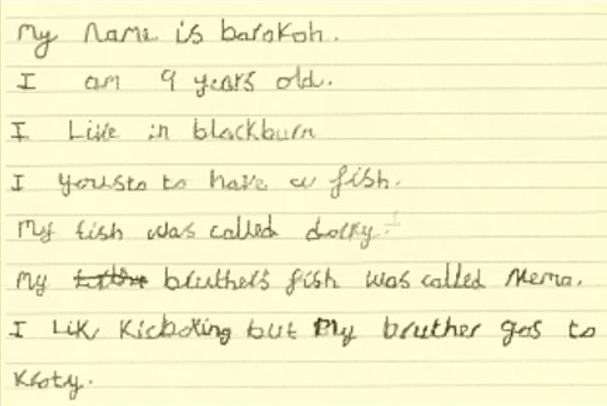 My name is barakah.
I am 9 years old.
I Live in blackburn
I yousto to have a fish.
My fish was called dolly.
My bruthers fish was called Memo.
I Lik Kickboxing but My bruther gos to
Kroty.